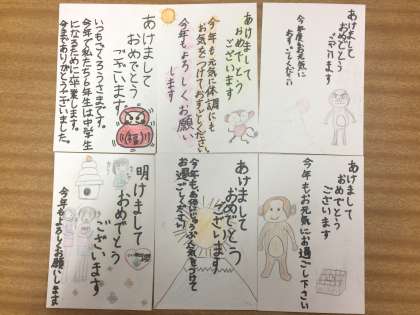 あけまして
おめでとう
ございます
いつもごくろうさまです。
今年で私たち6年生は中学生
になるために卒業します。
今までありがとうございました。
福
あけまして
おめでとう
ございます
今年も元気に体調にも
お気をつけておすごしください
今年もよろしくお願い
します
あけまして
おめでとう
ございます
今年度もお元気に
おすごしください
明けまして
おめでとう
ございます
今年もよろしくお願いします
あけまして
おめでとう
ございます
今年も
気をつけて
お過ごしください
あけまして
おめでとう
ございます
今年もお元気にお過ごし下さい